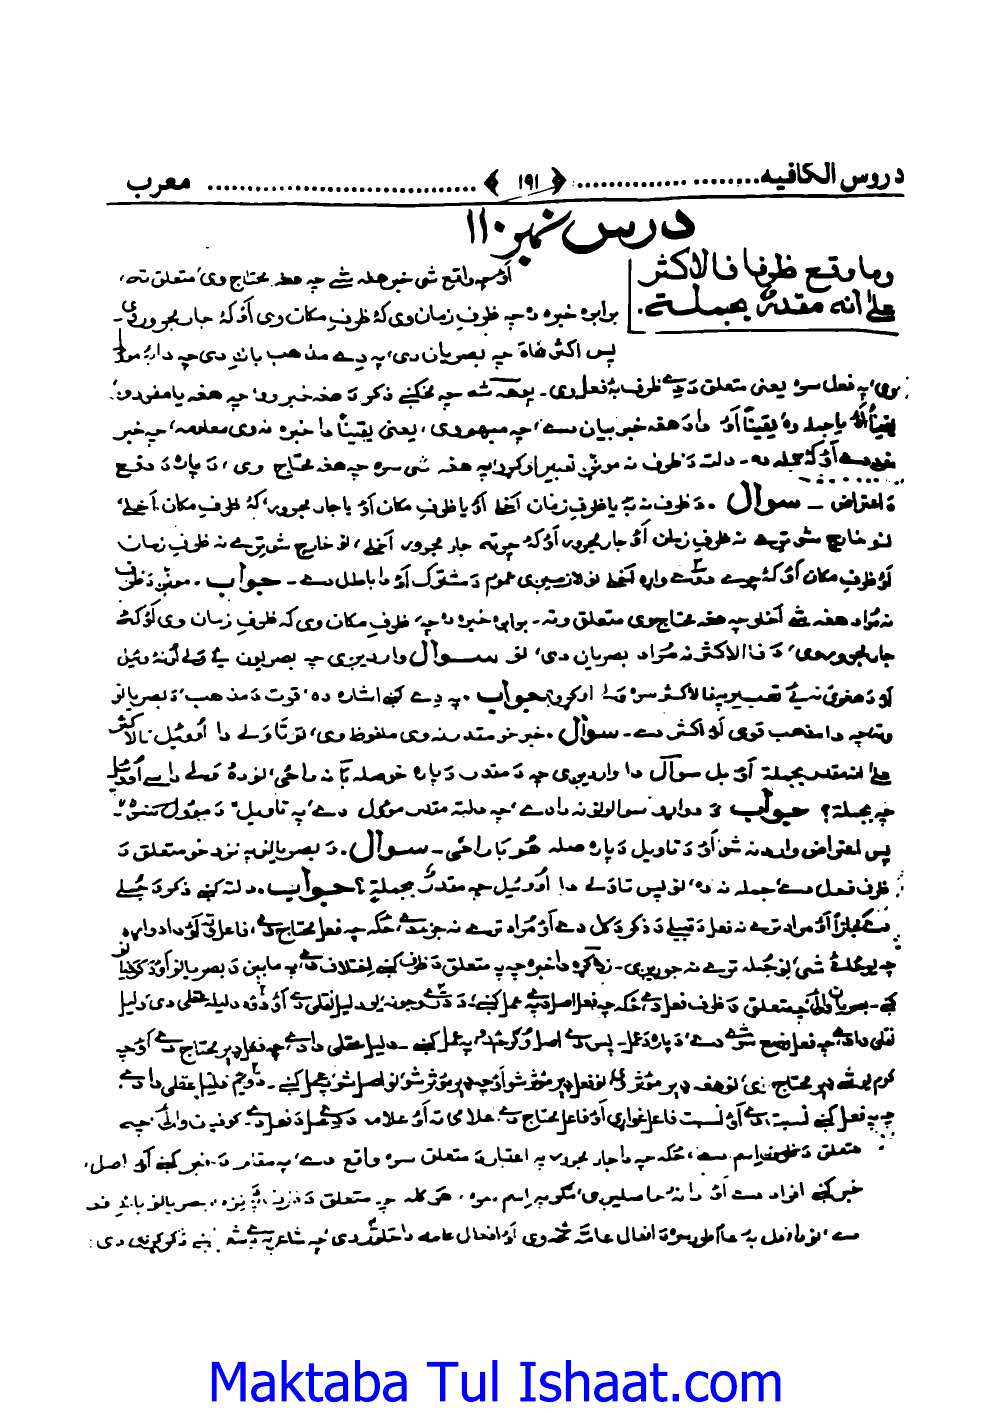 دروس الکافیه ........ ﴿ ۱۹۱ ﴾ ........ معرب
درس نمبر ۱۱۰
وما وقع ظرفا فالاکثر
علیٰ انه مقدر بجملة.
اؤ چه واقع شی خبر هغه شے چه هغه محتاج وی متعلق ته،
برابره خبره ده چه ظرف زمان وی که ظرف مکان وی اؤ که جار مجرور وی۔
پس اکثر نحاة چه بصریان دی، په دے مذهب باندی چه دا
په فعل سره یعنی متعلق د دے ظرف به فعل وی۔ چه مخکنے ذکر د هغه خبر وو، چه هغه یا مفرد وو
یا جمله وه یقیناً اؤ دا د هغه خبر بیان دے، چه وی، یعنی یقیناً دا خبره نه وی معلومه، چه خبر
دے اؤ که جمله ده۔ دلته د ظرف نه تعبیر اوکرو په هغه شی سره چه هغه محتاج وی، د پاره د دفع
د اعتراض ــ سوال. د ظرف نه به یا ظرف زمان اخلے اؤ یا ظرف مکان اؤ یا جار مجرور، که ظرف مکان اخلے،
نو خارج شو ترے نه ظرف زمان اؤ جار مجرور اؤ که چرته جار مجرور اخلے، نو خارج شو ترے نه ظرف زمان
اؤ ظرف مکان اؤ که چرے واړه اخلے نو لازمیږی عموم د مشترک اؤ دا باطل دے۔ جواب. د ظرف
نه مراد هغه شے اخلو چه هغه محتاج وی متعلق ته۔ برابره خبره ده چه ظرف مکان وی که ظرف زمان وی اؤ که
جار مجرور وی، د فالاکثر نه مراد بصریان دی، نو سوال واردیږی چه بصریون یے ولے اونه وئیل
اؤ د هغوی نه یے تعبیر په فالاکثر سره ولے اوکرو؟ جواب. په دے کنے اشاره ده، قوت د مذهب د بصریانو
ته چه دا مذهب قوی اؤ اکثر دے۔ سوال. خبر خو مقدر نه وی ملفوظ وی، نو تا ولے دا اووئیل فالاکثر
علی انه مقدر بجملة اؤ بل سوال دا واردیږی چه د مقدر د پاره خو صله با نه راځی، نو ده ولے داسے اووئیل
چه بجملة؟ جواب د دواړو سوالونو نه دا دے، چه دلته مقدر مؤول دے، په تاویل د
پس اعتراض وارد نه شو اؤ د تاویل د پاره صله هم با راځی۔ سوال. د بصریانو په نزد خو متعلق د
ظرف فعل دے، جمله نه ده، نو پس تا ولے دا اووئیل چه مقدر بجملة؟ جواب. دلته کنے ذکر د جملے
دے مجازاً اؤ مراد ترے نه فعل د قبیلے د ذکر د کل دے اؤ مراد ترے نه جز دے، ځکه چه فعل محتاج دے، فاعل ته اؤ دا دواړه
چه یوځائے شی، نو جمله ترے نه جوړیږی۔ زده کړه دا خبره چه په متعلق د ظرف کنے اختلاف دے، په مابین د بصریانو اؤ د کوفیانو
کنے۔ بصریان وائی چه متعلق د ظرف فعل دے، ځکه چه فعل اصل دے په عمل کنے، د دے وجه نه یو دلیل نقلی دے اؤ دوه دلیله عقلی دی، دلیل
نقلی دا دے، چه فعل وضع شوے دے، د پاره د عمل۔ پس دے اصل وګرځید په عمل کنے ۔ دلیل عقلی دا دے، چه فعل ډیر محتاج دے اؤ چه
کوم یو شے ډیر محتاج وی، نو هغه ډیر مؤثر وی نو فعل ډیر مؤثر شو اؤ چه ډیر مؤثر شو، نو اصل شو په عمل کنے ۔ دویم دلیل عقلی دا دے،
چه په فعل کنے نسبت دے اؤ نسبت فاعل غواړی اؤ فاعل محتاج دے علامے ته اؤ علامه د فعل ده۔ کوفیان وائی چه
متعلق د ظرف اسم دے، ځکه چه دا جار مجرور په اعتبار د متعلق سره واقع دے، په مقام د خبر کنے اؤ اصل،
خبر کنے افراد دے اؤ دا نه حاصلیږی، مګر په اسم سره، هر کله چه متعلق د په نزد، بصریانو باندے فعل
دے، نو دا فعل به عام طور سره افعال عامه وی اؤ افعال عامه دا څلور دی، چه شاعر په کنے ذکر کړی دی:
Maktaba Tul Ishaat.com